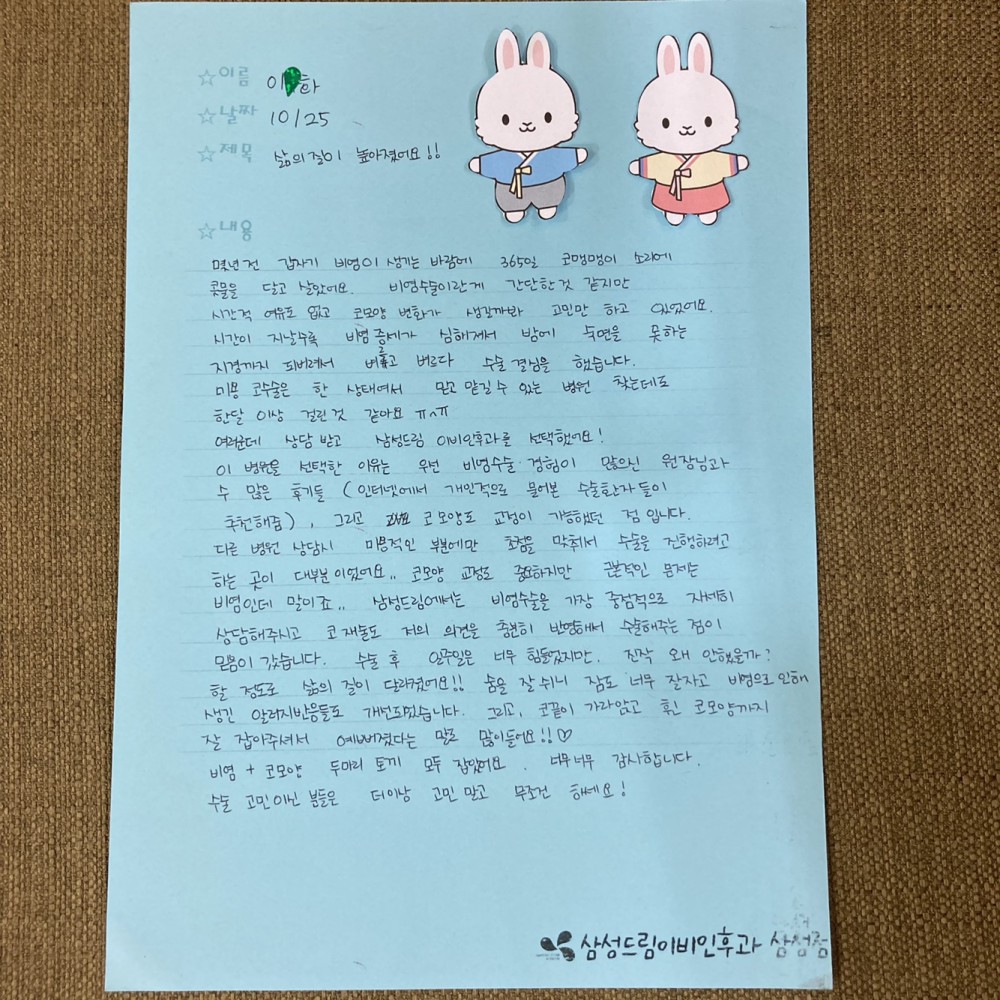 ☆이름 이 화
☆날짜 10/25
☆제목 삶의 질이 높아졌어요!!
☆내용
몇년 전 갑자기 비염이 생기는 바람에 365일 코맹맹이 소리에
콧물을 달고 살았어요. 비염수술이란게 간단한 것 같지만
시간적 여유도 없고 코모양 변화가 생길까봐 고민만 하고 있었어요.
시간이 지날수록 비염 증세가 심해져서 밤에 숙면을 못하는
지경까지 되버려서 벼르고 벼르다 수술 결심을 했습니다.
미용 코수술은 한 상태여서 믿고 맡길 수 있는 병원 찾는데도
한달 이상 걸린 것 같아요 ㅠㅅㅠ
여러군데 상담 받고 삼성드림 이비인후과를 선택했어요!
이 병원을 선택한 이유는 우선 비염수술 경험이 많으신 원장님과
수 많은 후기들 (인터넷에서 개인적으로 물어본 수술환자들이
추천해줌), 그리고 코모양도 교정이 가능했던 점 입니다.
다른 병원 상담시 미용적인 부분에만 초점을 맞춰서 수술을 진행하려고
하는 곳이 대부분이었어요.. 코모양 교정도 중요하지만 근본적인 문제는
비염인데 말이죠.. 삼성드림에서는 비염수술을 가장 중점적으로 자세히
상담해주시고 코 재수술도 저의 의견을 충분히 반영해서 수술해주는 점이
믿음이 갔습니다. 수술 후 일주일은 너무 힘들었지만, 진작 왜 안했을까?
할 정도로 삶의 질이 달라졌어요!! 숨을 잘 쉬니 잠도 너무 잘자고 비염으로 인해
생긴 알러지반응들도 개선되었습니다. 그리고, 코끝이 가라앉고 휜 코모양까지
잘 잡아주셔서 예뻐졌다는 말도 많이들어요!!♡
비염 + 코모양 두마리 토끼 모두 잡았어요. 너무너무 감사합니다.
수술 고민이신 분들은 더이상 고민 말고 무조건 하세요!
삼성드림이비인후과 삼성점